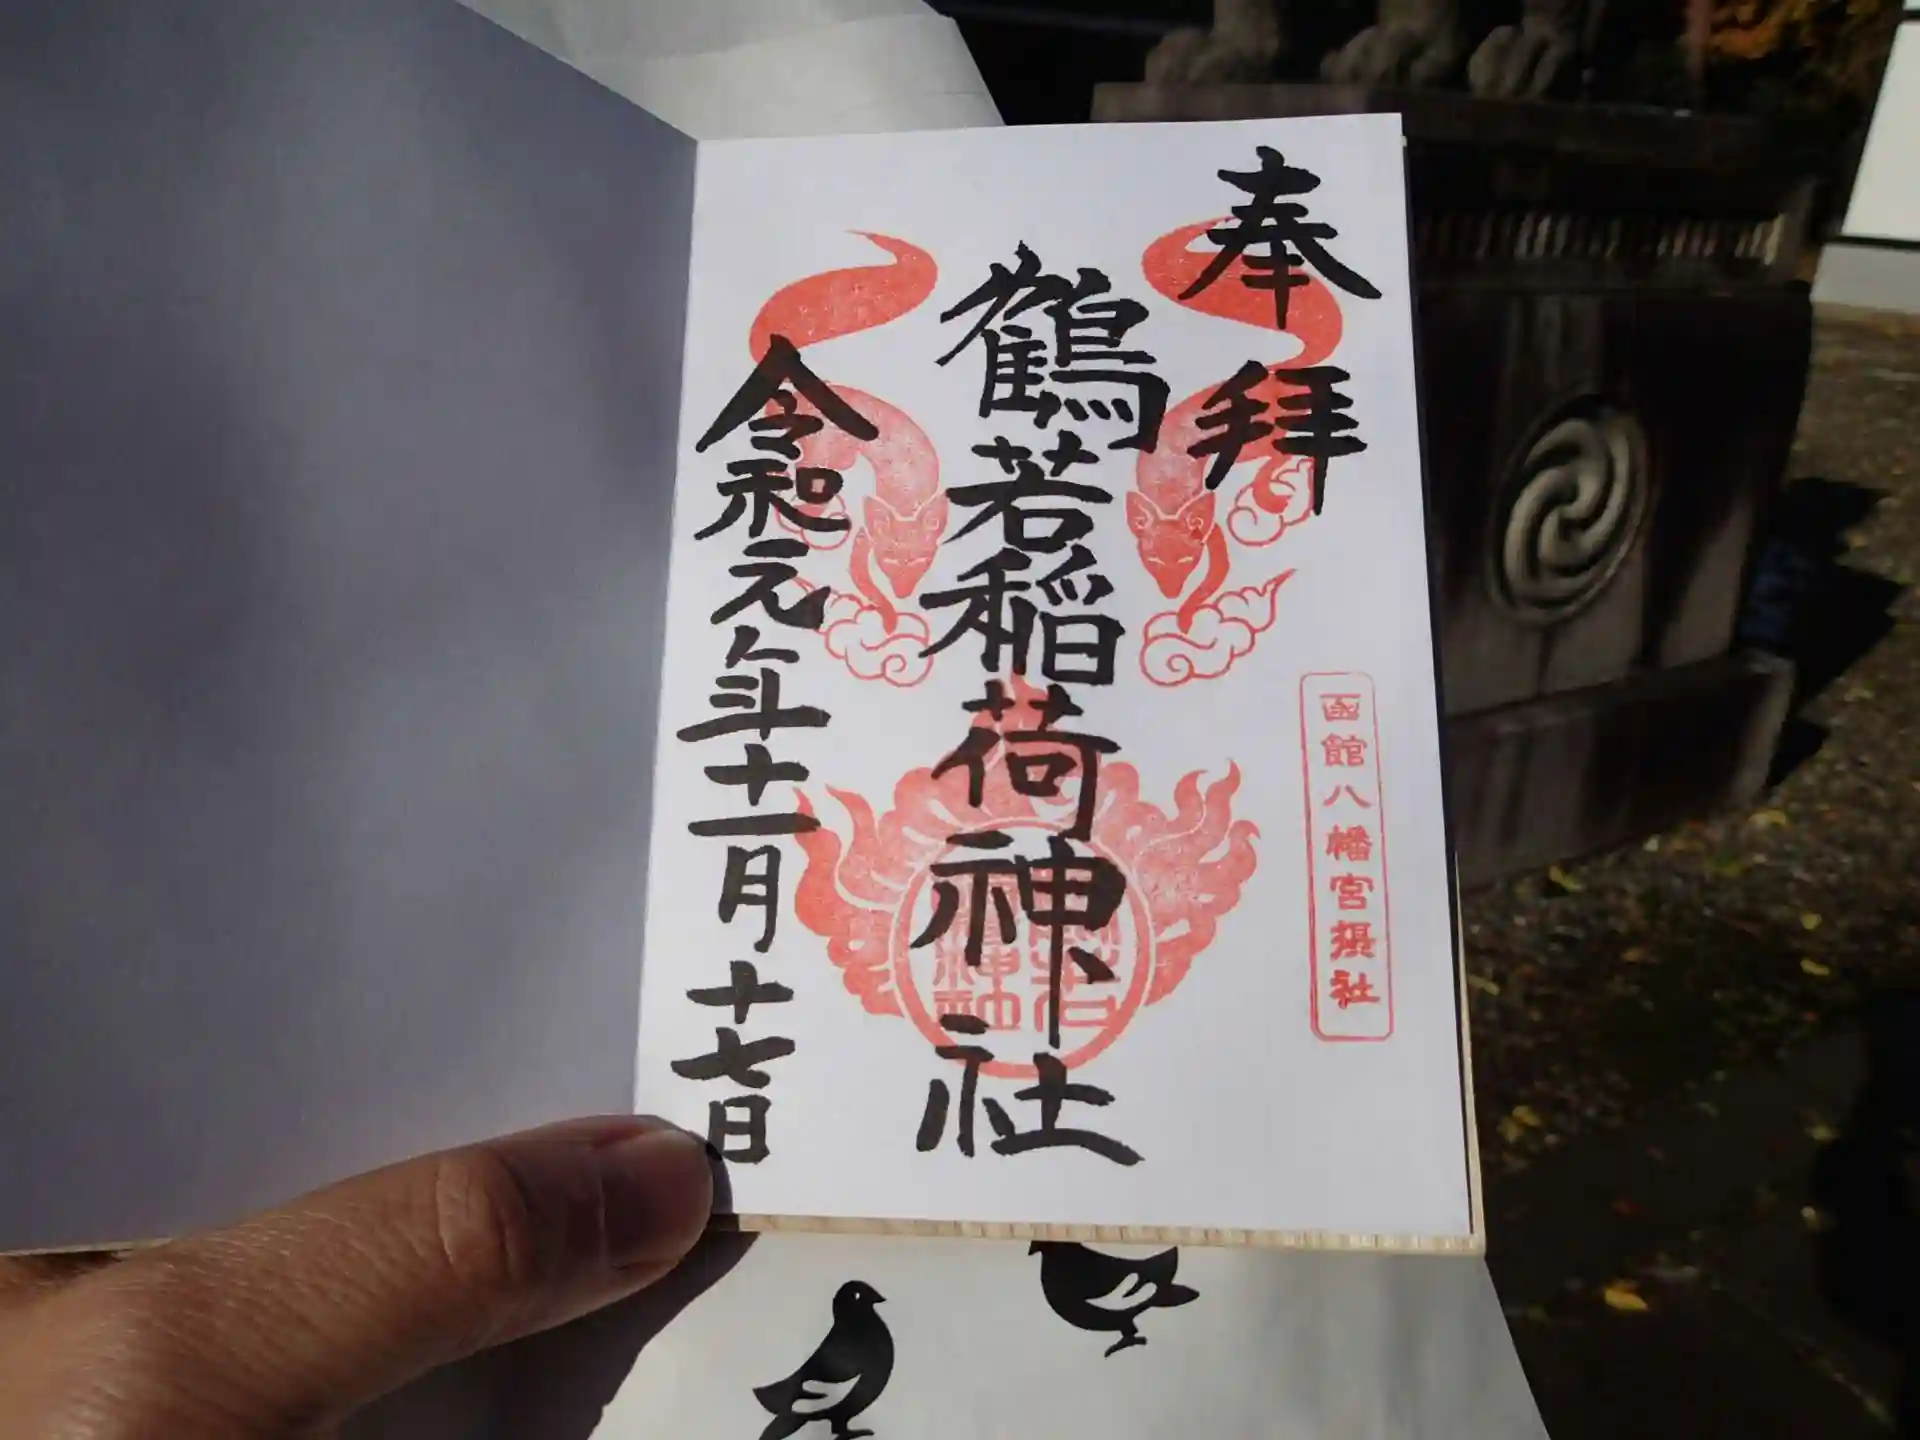 奉拝
鶴若稲荷神社
令和元年十一月十七日
函館八幡宮摂社